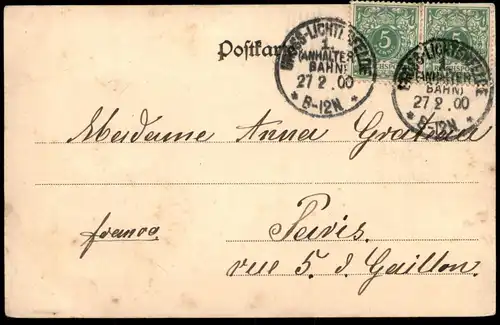 Postkarte
5 5
REICHSPOST
GROSS-LICHTERFELDE
1.
(ANHALTER
BAHN)
27 2.00
* 8-12N *
GROSS-LICHTERFELDE
1.
(ANHALTER
BAHN)
27 2.00
* 8-12N *
Madame Anna
franco
Paris
rue 5. d. Gaillon.